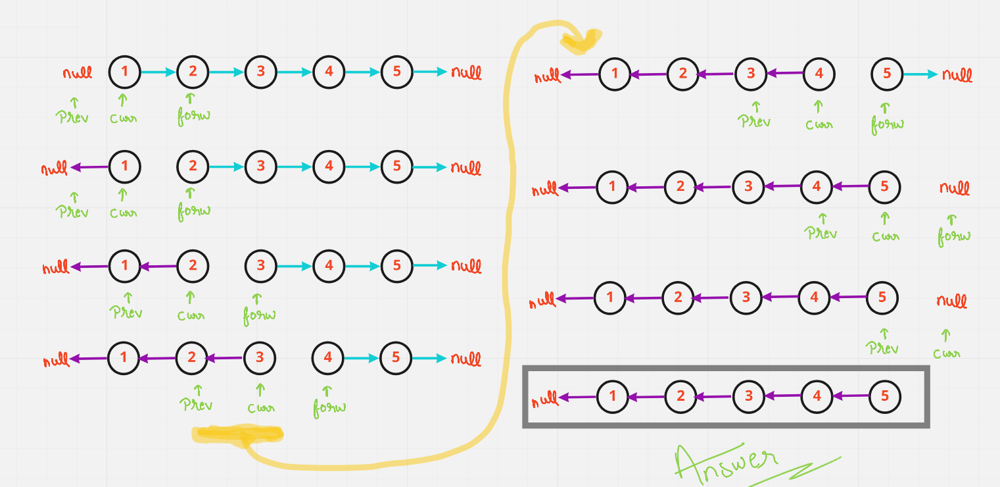 null 1 2 3 4 5 null
Prev curr forw
null 1 2 3 4 5 null
Prev curr forw
null 1 2 3 4 5 null
Prev curr forw
null 1 2 3 4 5 null
Prev curr forw
null 1 2 3 4 5 null
Prev curr forw
null 1 2 3 4 5 null
Prev curr forw
null 1 2 3 4 5 null
Prev curr
null 1 2 3 4 5
Answer